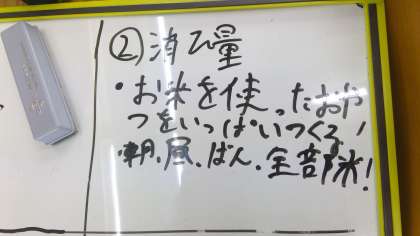 ②消ひ量
・お米を使ったおや
つをいっぱいつくる!
・朝、昼、ばん、全部米!